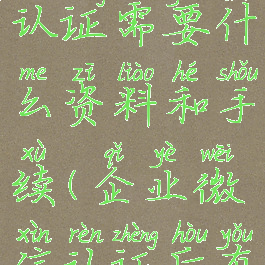 认证需要什
me zī liào hé shǒu
么资料和手
xù qǐ yè wēi
续(企业微
xìn rèn zhèng hòu yǒu
信认证后有